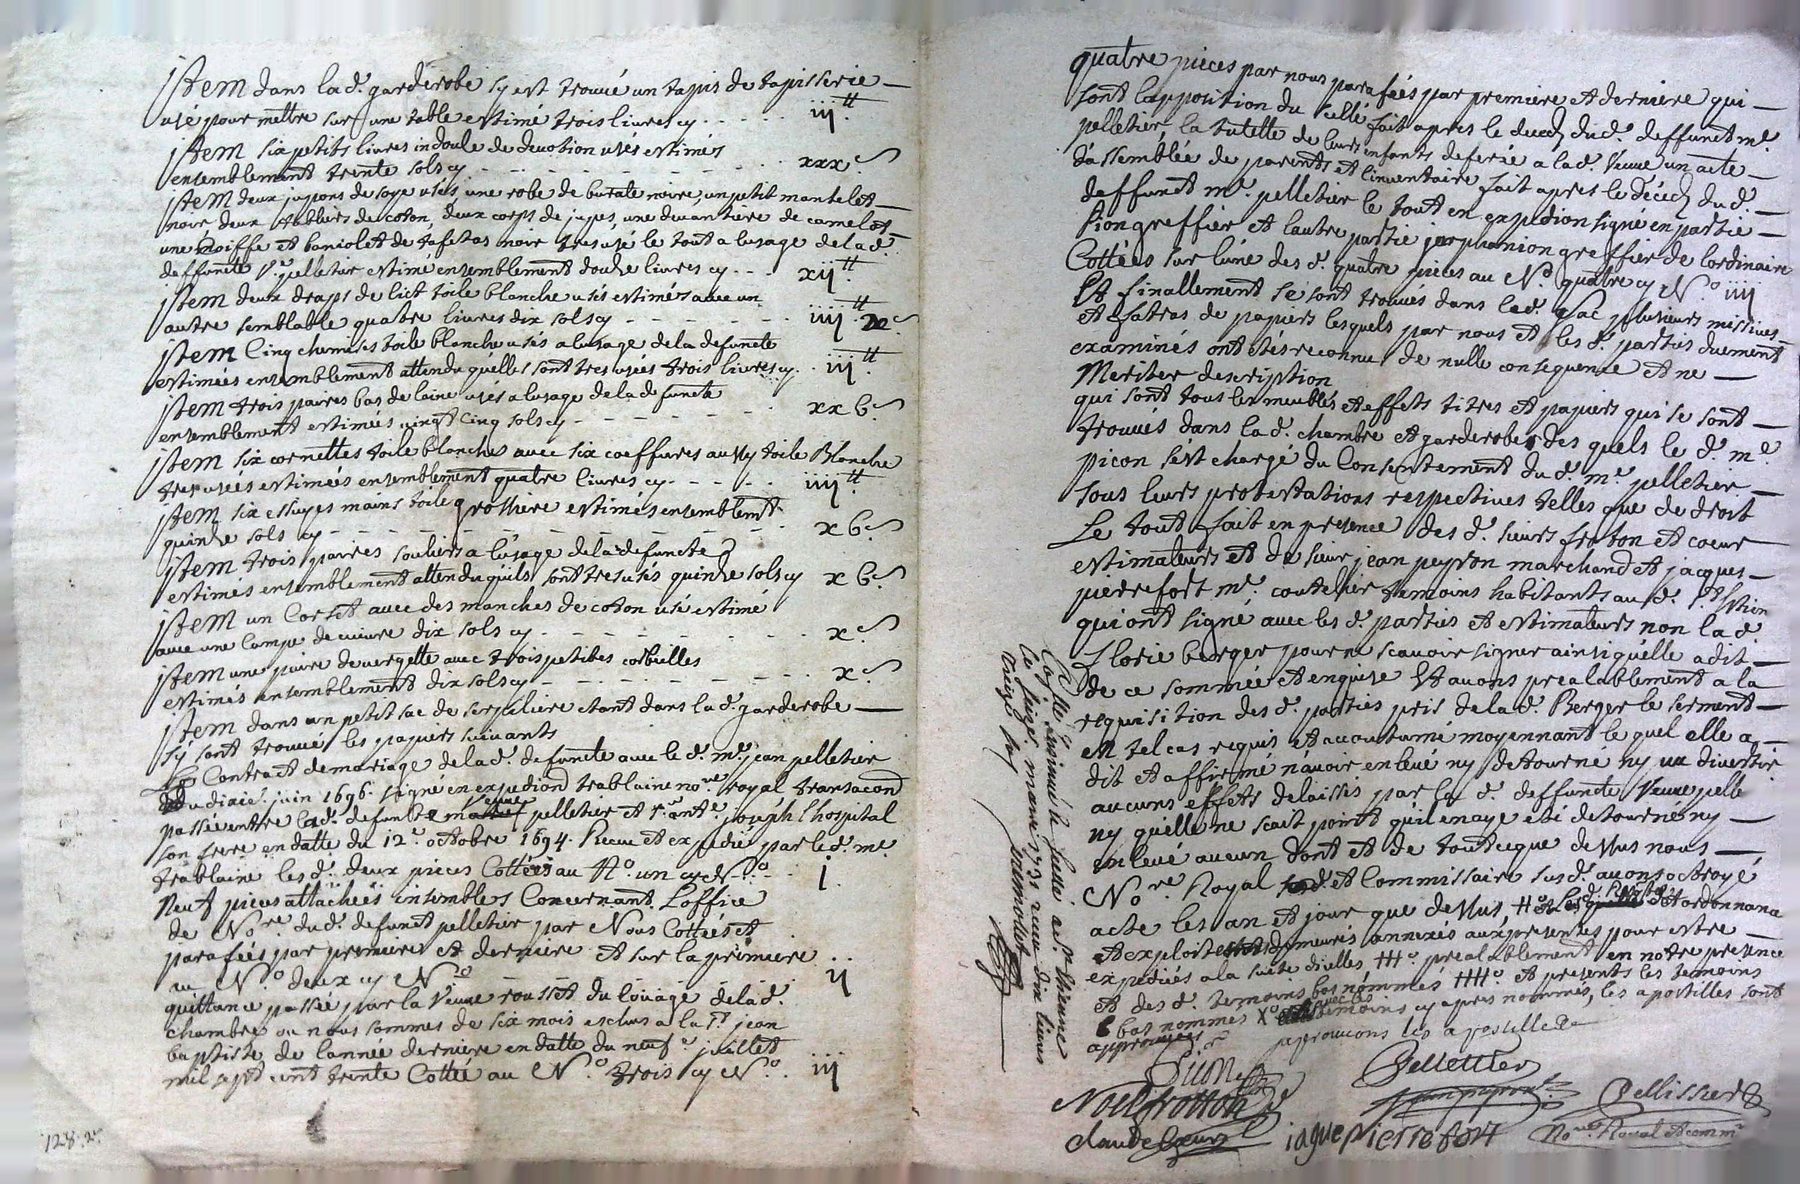 jtem dans lad. garderobe sy est trouvé un tapis de tapisserie
usé pour mettre sur une table estimé trois livres cy . . . . . iij.tt
jtem six petits livres indoule de devotion usés estimés
ensemblement trente sols cy . . . xxx s
jtem deux juppons de soye usés une robe de burate noire, un petit mantelet
noir deux tabliers de coton, deux corps de jupes une devantiere de camelot
une coiffe et baniolet de tafetas noir tres usé le tout a lusage de lad.
deffuncte v.e pelletier estimé ensemblement douze livres cy . . . xij.tt
jtem deux draps de lict toile blanche usés estimés avec un
autre semblable quatre livres dix sols cy iiij.tt x s
jtem Cinq chemises toile blanche usés a lusage de la defuncte
estimées ensemblement attendu quelles sont tres usées trois livres cy . . iij.tt
jtem trois paires bas de laine usés a lusage de la defuncte
ensemblement estimées vingt Cinq sols cy xxb s
jtem six cornettes toile blanches avec six coeffures aussy toile Blanche
tres usées estimées ensemblement quatre livres cy iiij.tt
jtem six essuyes mains toile grossiere estimés ensemblemt
quinze sols cy xb s
jtem trois paires souliers a lusage de la defuncte
estimés ensemblement attendu quils sont tres usés quinze sols cy xb s
jtem un Corset avec des manches de coton usé estimé
avec une lampe de cuivre dix sols cy x s
jtem une paire de vergette avec trois petites corbeilles
estimés ensemblement dix sols cy x s
jtem dans un petit sac de serpiliere etant dans lad. garderobe
sy sont trouvés les papiers suivants
Le Contract de mariage de lad. defuncte avec led. m.e jean pelletier
du dixie. juin 1696. signé en expedion trablaine no.re royal transacon
passée entre lad. defuncte veuve pelletier et s.r ant.e joseph lhospital
son frere en datte du 12.e octobre 1694. Receue et expedié par led. m.e
trablaine lesd. deux pieces Cottées au N.o un cy N.o . . . j.
Neuf pieces attachées ensembles Concernant Loffice
de No.re dud. defunct pelletier par Nous Cottées et
parafées par premiere et derniere et sur la premiere . .
au N.o deux cy N.o ij
quittance passée par la veuve rousset du louage de lad.
chambre ou nous sommes de six mois eschus a la s.t jean
baptiste de lannée derniere en datte du neuf.e juillet
mil sept cent trente Cottée au N.o trois cy N.o . iij
128. 2.
quatre pieces par nous parafées par premiere et derniere qui
sont lapposition du sellé fait apres le decez dud. deffunct m.e
pelletier, la tutelle de leurs enfants deferée a lad. veuve un acte
dassemblée de parents et linventaire fait apres le Décez dud.
deffunct m.e pelletier le tout en expedion signé en partie
Pion greffier et lautre partie jarphanion greffier de lordinaire
Cottées sur lune desd. quatre pieces au N.o quatre cy N.o iiij
Et finallement se sont trouvés dans led. sac plusieurs missives
et fatras de papiers lesquels par nous et lesd. parties duement
examinés ont etés reconnu de nulle consequence et ne
Meriter description
qui sont tous les meubles et effets titres et papiers qui se sont
trouvés dans lad. chambre et garderobe des quels led. m.e
picon sest chargé du Consentement dud. m.e pelletier
sous leurs protestations respectives telles que de droit
Le tout fait en presence desd. sieurs froton et coeur
estimateurs et de sieur jean peyron marchand et jacques
pierrefort m.e coutelier temoins habitants aud. s.t Estien
qui ont signé avec lesd. parties et estimateurs non lad.
Florie berger pour ne scavoir signer ainsi quelle a dit
de ce sommée et enquise Et avons prealablement a la
requisition desd. parties pris de lad. Berger le serment
en tel cas requis et accoutumé moyennant le quel elle a
dit et affirmé navoir enlevé ny detourné ny vu divertir
aucuns effets delaissés par lad. deffuncte veuve pelle
ny quelle ne scait point quil en aye eté detourné ny
enlevé aucun dont et de tout ce que dessus nous
No.re Royal et Commissaire susd. avons octroyé
acte les an et jour que dessus, ordonnance
et exploit demeurés annexés aux presentes pour estre
expediés a la suite dicelles prealablement en notre presence
et desd. temoins bas nommés et presents les temoins
bas nommes temoins cy apres nommés, les apostilles sont
approuvées approuvons les apostilles
Picon
Pelletier
Noel frotton
jean peyron
Pellissier
claude Coeur
iaque pierrefort
No.re Royal et comm.re
Con.llé a s.t Etienne
Ce seize mars 1731 receu dix livres